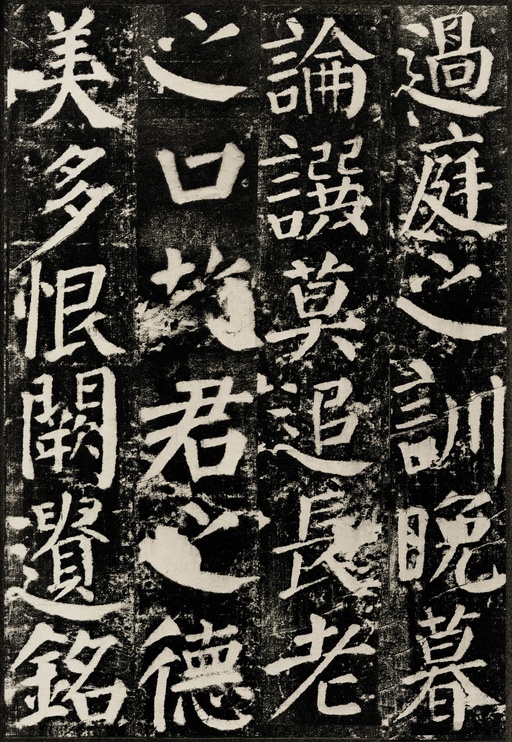 過庭之訓晚暮
論譔莫追長老
之口故君之德
美多恨闕遺銘